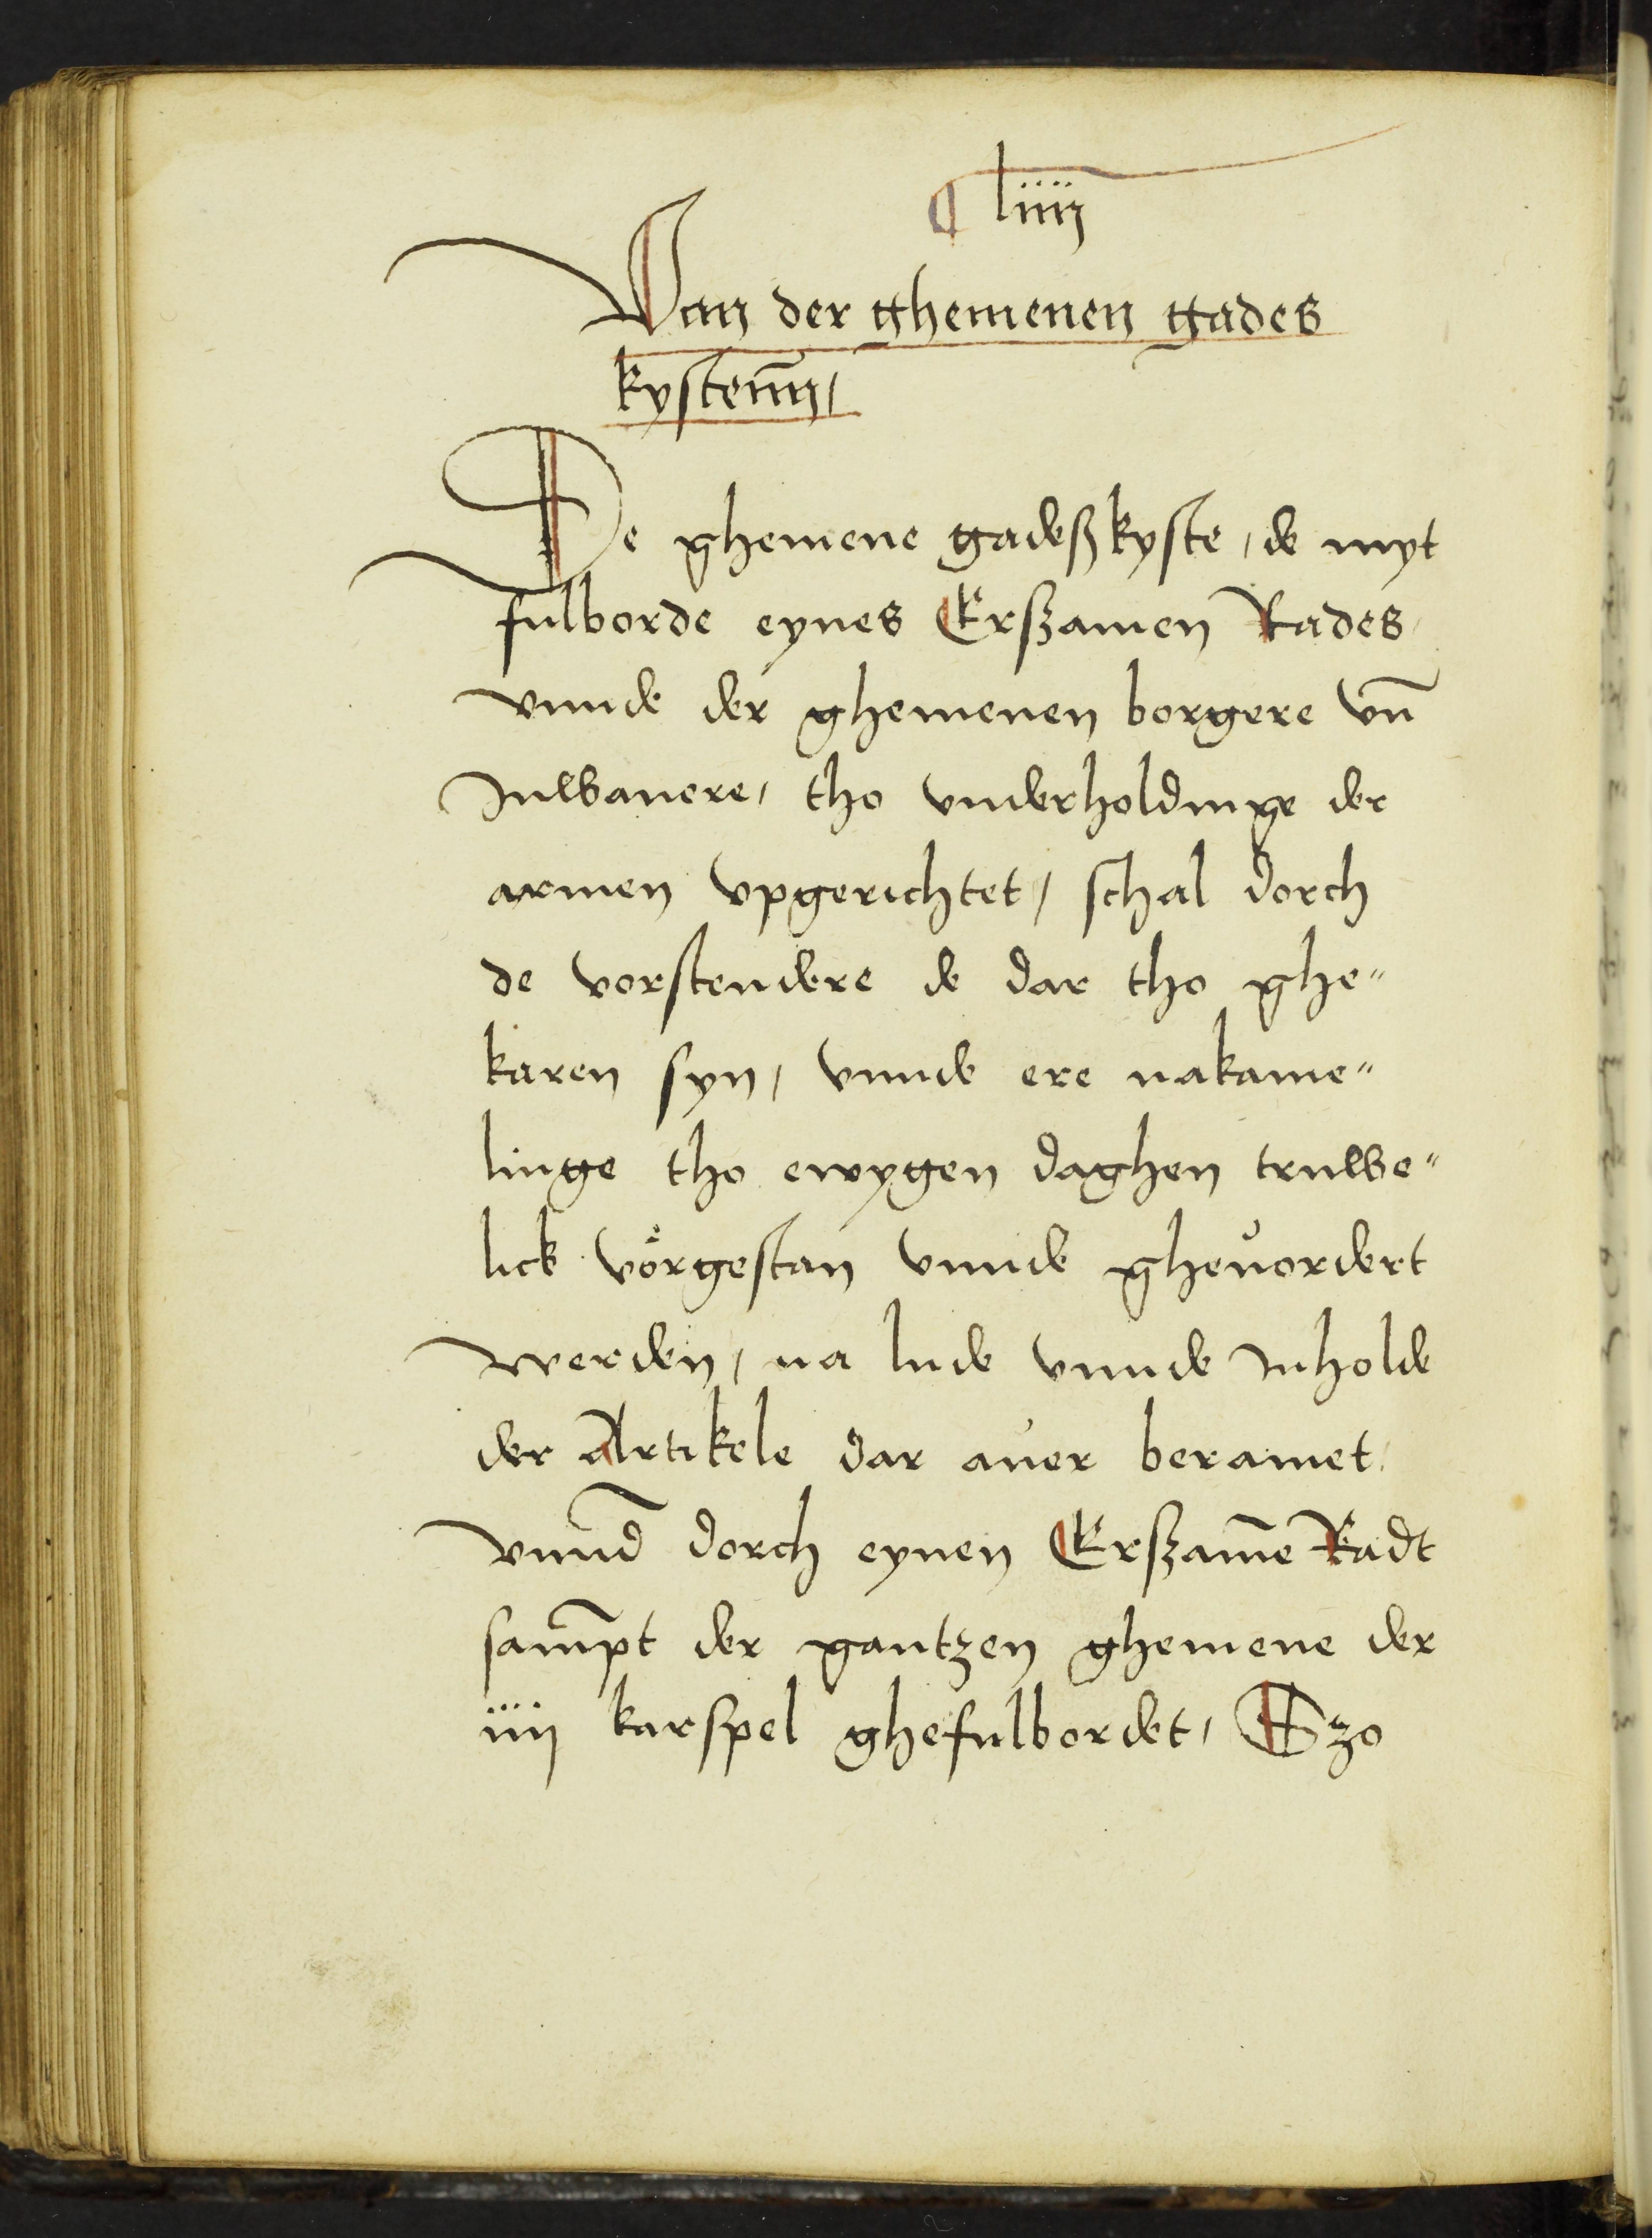 ¶ liiij
Van der ghemenen gades
kystenn,
De ghemene gadeßkyste, de myt
fulborde eynes Erßamen Rades,
vnnde der ghemenen borgere vn̄
Inwanere, tho vnderholdinge der
armen vpgerichtet, schal dorch
de vorstendere de dar tho ghe"
karen syn, vnnde ere nakame"
linge tho ewygen daghen truwe"
lick vörgestan vnnde gheuordert
werden, na lude vnnde Inholde
der Artikele dar auer beramet,
vnnd dorch eynen Erßamē Radt
sampt der gantzen ghemene der
iiij karspel ghefulbordet, Szo